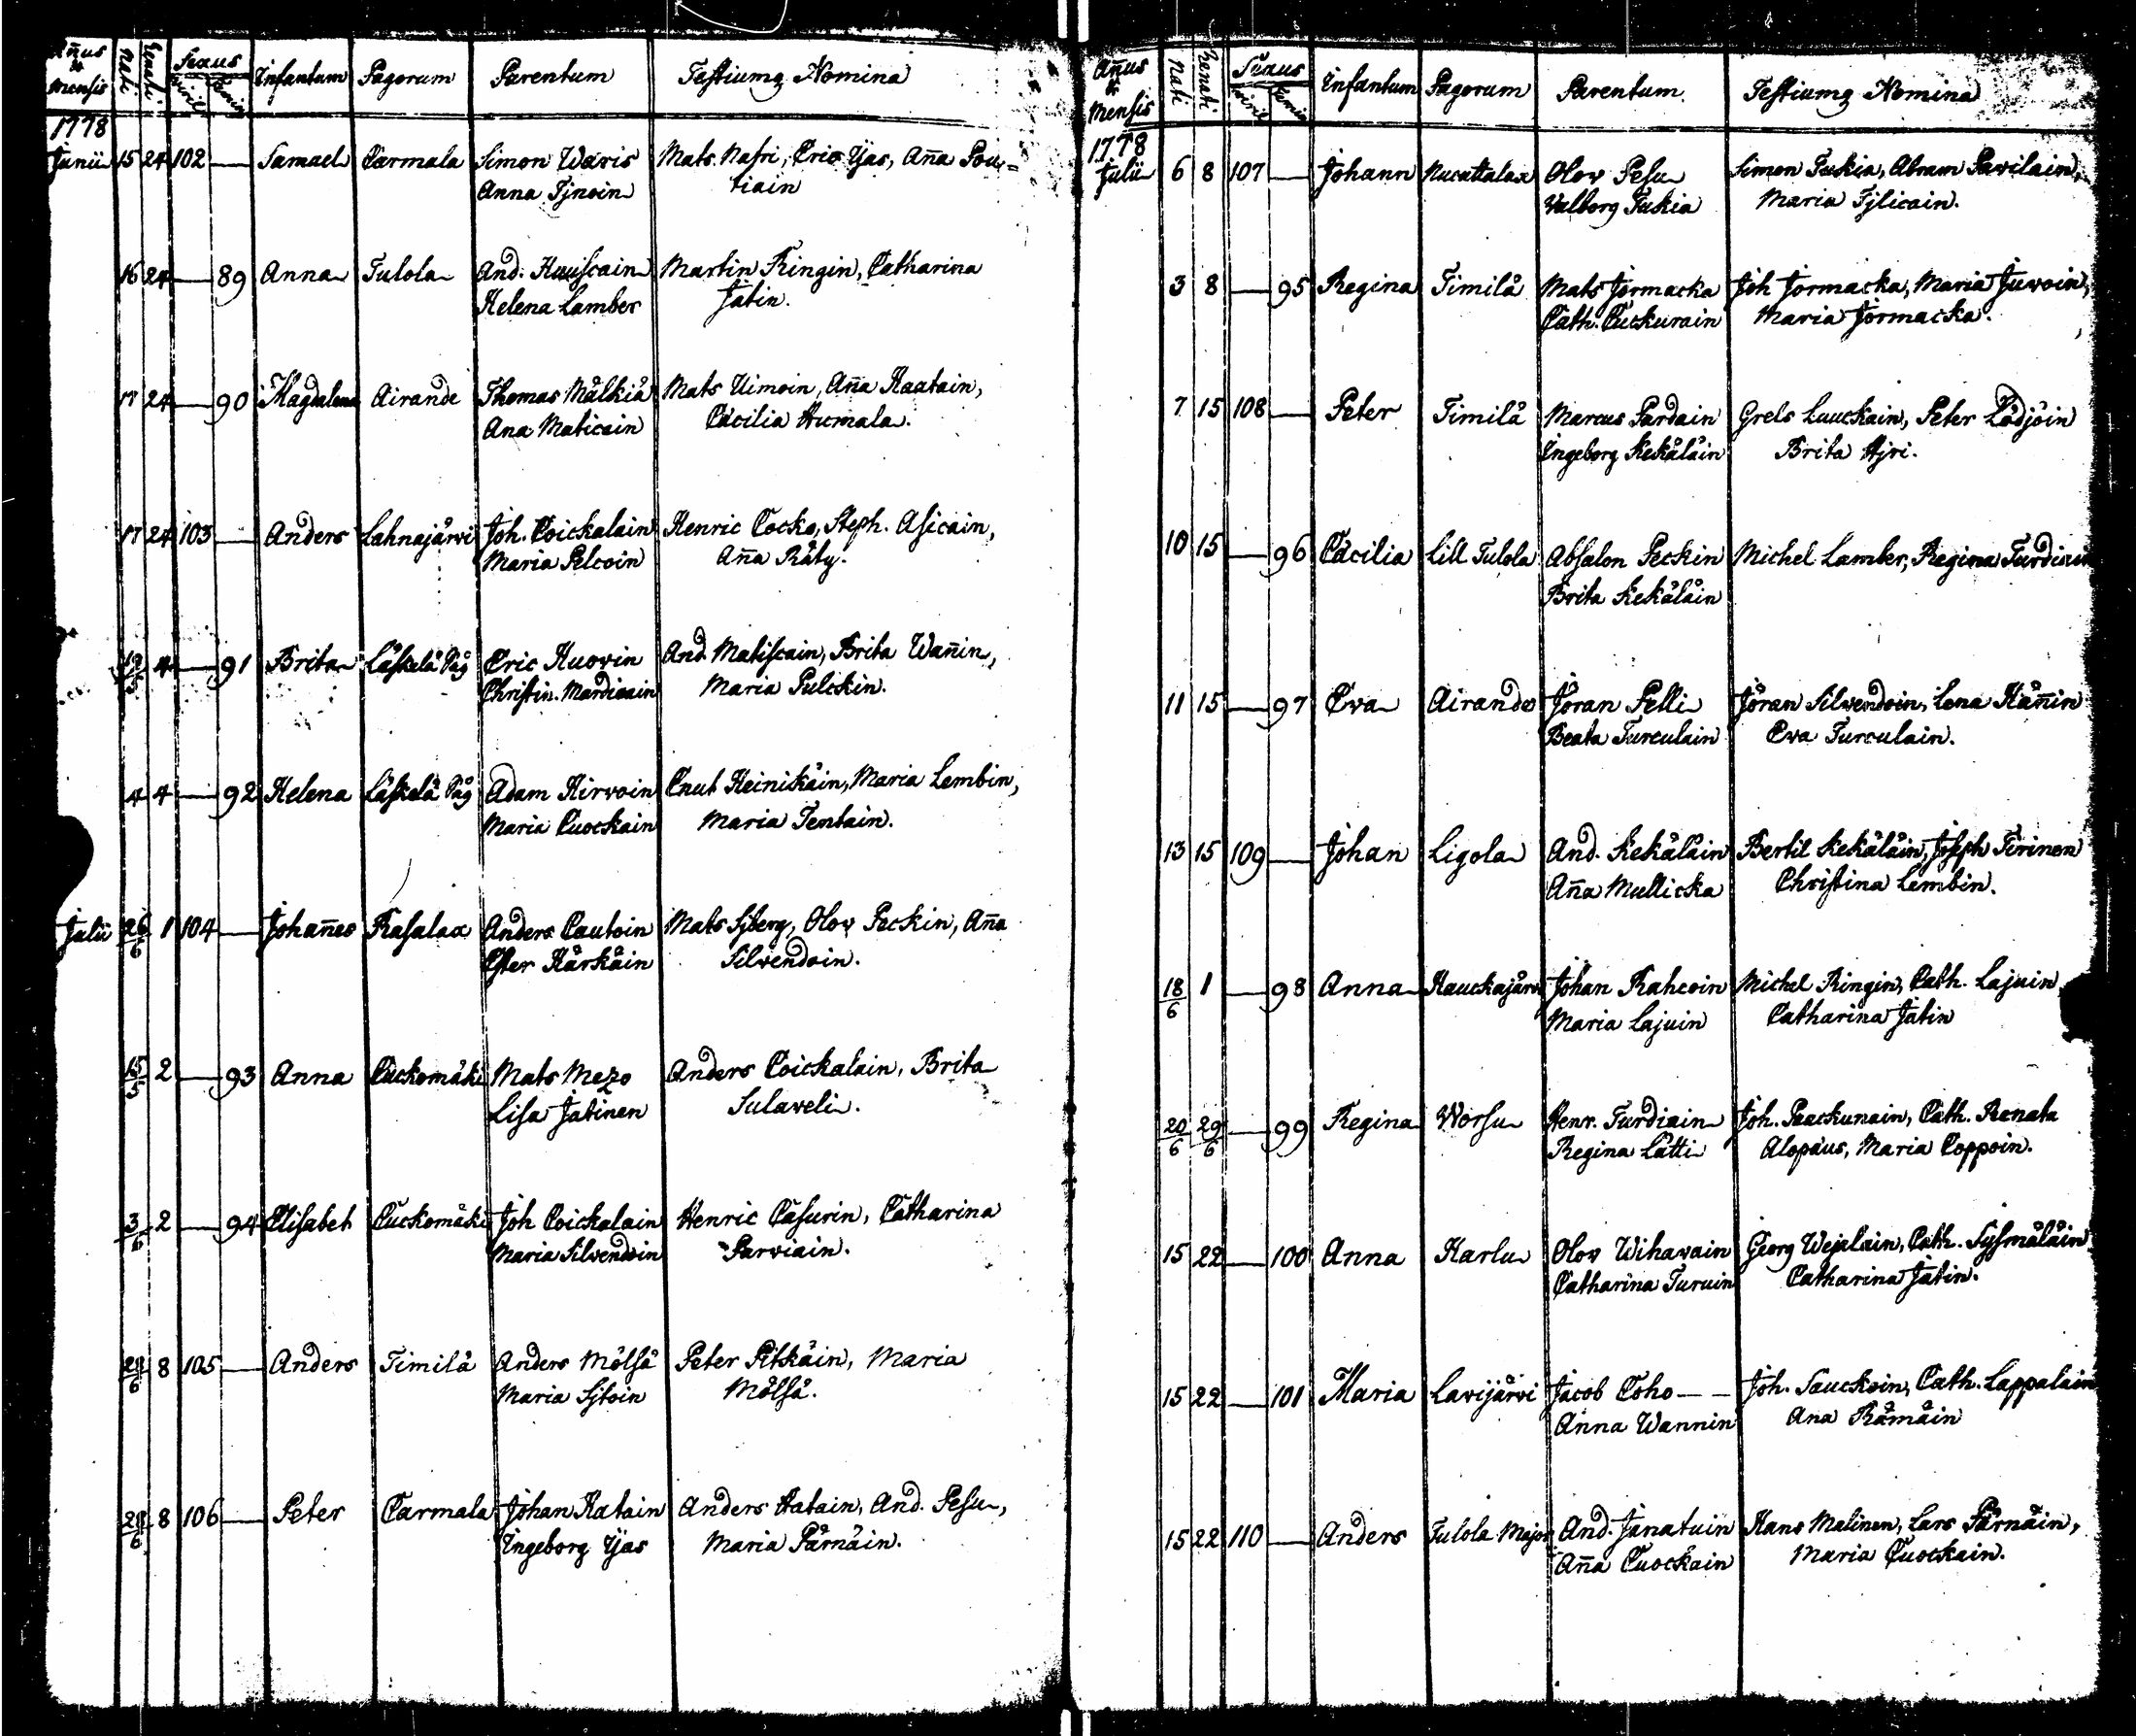 Añus & Mensis Nati Renati Sexus viril femin Infantum Pagorum Parentum Testiumq Nomina
1778
Junii 15 24 102 — Samuel Carmala Simon Waris Mats Nafri, Eric Yjas, Aña Pou=
Anna Tynoin tiain
16 24 — 89 Anna Tulola And. Huiscain Martin Ringin, Catharina
Helena Lamber Jätin.
17 24 — 90 Magdalena Airande Thomas Mälkiä Mats Uimoin, Aña Haatain,
Ana Maticain Cäcilia Humala.
17 24 103 — Anders Lahnajärvi Joh. Coickalain Henric Cocko, Steph. Asicain,
Maria Pelcoin Aña Räty.
4 — 91 Brita Läskelä Påg Eric Huovin And. Matiscain, Brita Wañin,
Christin. Mardicain Maria Pulckin.
4 4 — 92 Helena Läskelä Påg Adam Hirvoin Cnut Heinikäin, Maria Lembin,
Maria Cuockain Maria Tentain.
Julii 26/6 1 104 — Johañes Rasalax Anders Cautoin Mats Sjberg, Olov Peckin, Aña
Ester Härkäin Silvendoin.
15/5 2 — 93 Anna Cuckomäki Mats Mezo Anders Coickalain, Brita
Lisa Jätinen Sulaveli.
3/6 2 — 94 Elisabet Cuckomäki Joh Coickalain Henric Casurin, Catharina
Maria Silvendoin Parviain.
28/6 8 105 — Anders Timilä Anders Mölsä Peter Pitkäin, Maria
Maria Sjtoin Mölsä.
28/6 8 106 — Peter Carmala Johan Hatain Anders Hatain, And. Pesu,
Ingeborg Yjas Maria Pärnäin.
Añus & Mensis Nati Renati Sexus viril femin Infantum Pagorum Parentum Testiumq Nomina
1778
Julii 6 8 107 — Johann Olov Pesu Simon Tukia, Abram Pavilain,
Valborg Tukia Maria Tjlicain.
3 8 — 95 Regina Timilä Mats Jormacka Joh Jormacka, Maria Juvoin,
Cath. Cuckurain Maria Jormacka.
7 15 108 — Peter Timilä Marcus Pardain Grels Luuckain, Peter Lödjöin
Ingeborg Kekäläin Brita Hjri.
10 15 — 96 Cäcilia Lill Tulola Absalon Peckin Michel Lamber, Regina Turdiain
Brita Kekäläin
11 15 — 97 Eva Airande Jöran Pelli Jöran Silvendoin, Lena Häñin
Beata Turculain Eva Turculain.
13 15 109 — Johan Ligola And. Kekäläin Bertil Kekäläin, Joseph Tirinen
Aña Mullicka Christina Lembin.
18/6 1 — 98 Anna Hauckajärvi Johan Rahcoin Michel Ringin, Cath. Lajuin
Maria Lajuin Catharina Jätin
20/6 29/6 — 99 Regina Worsu Henr. Turdiain Joh. Paackunain, Cath. Renata
Regina Lätti Alopäus, Maria Coppoin.
15 22 — 100 Anna Harlu Olov Wihavain Georg Wejalain, Cath. Sysmäläin
Catharina Turuin Catharina Jätin.
15 22 — 101 Maria Lavijärvi Jacob Coho — — Joh. Sauckoin, Cath. Lappalain
Anna Wannin Ana Rämäin
15 22 110 — Anders Tulola Major And. Janatuin Hans Malinen, Lars Pärnäin,
Aña Cuockain Maria Cuockain.